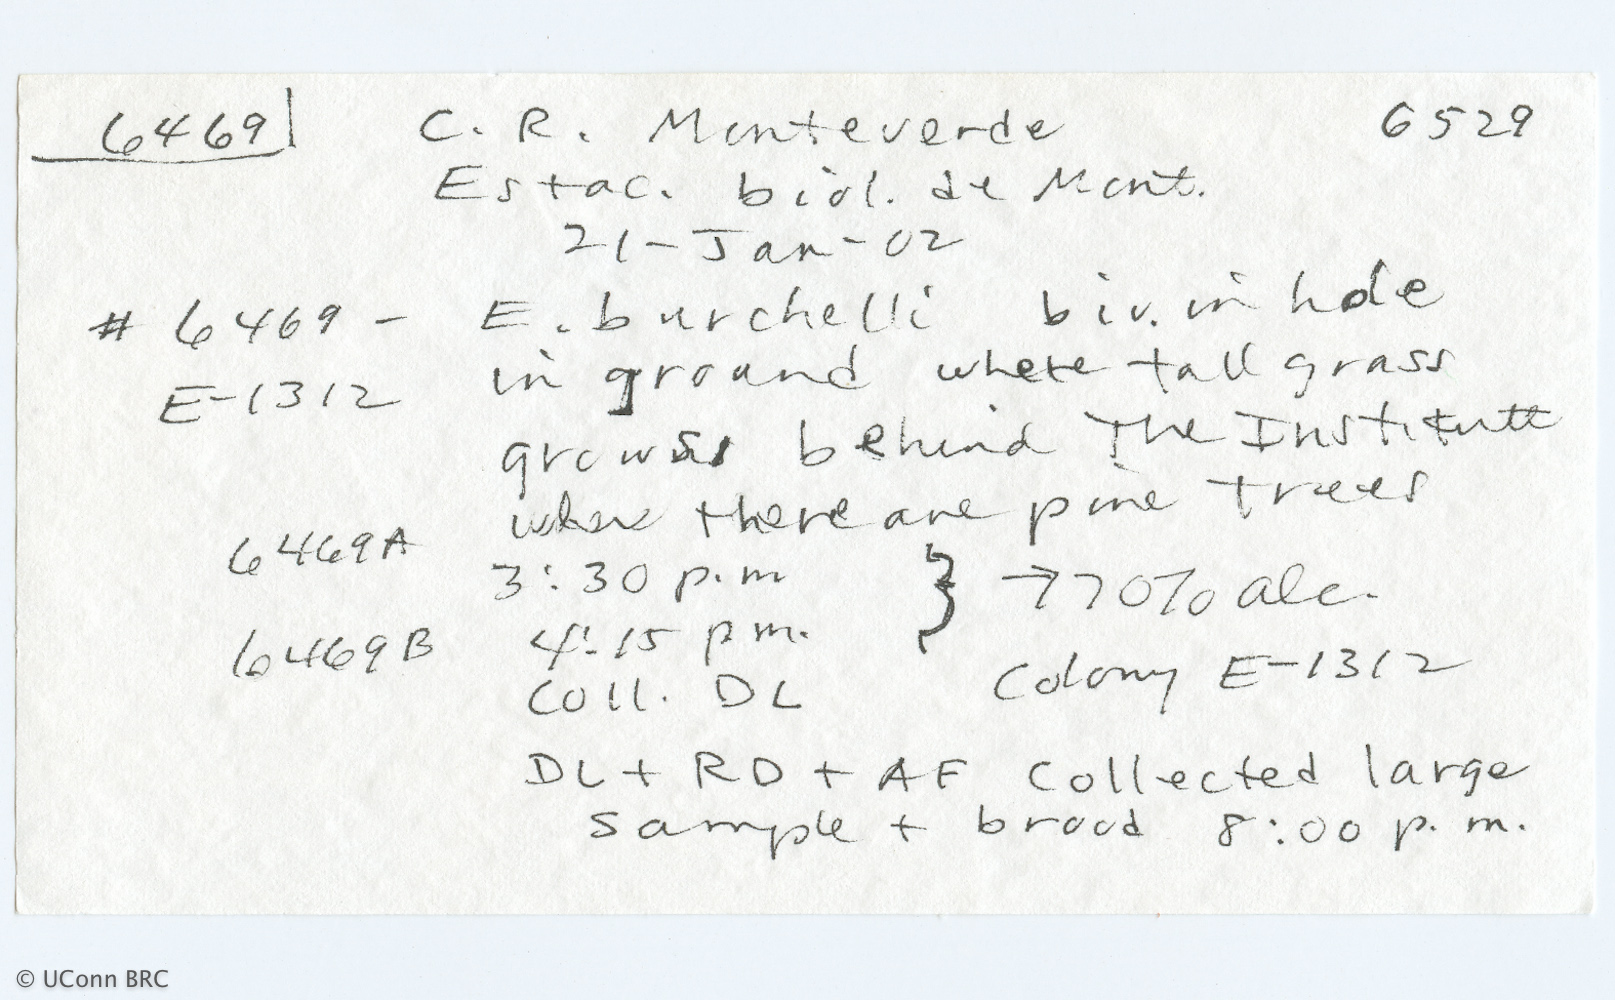 6469 C. R. Monteverde 6529
Estac. biol. de Mont.
21-Jan-02
# 6469 - E. burchelli biv. in hole
E-1312 in ground where tall grass
grows behind The Institute
where there are pine trees
6469A 3:30 p.m } → 70% alc.
6469B 4:15 p.m.
Coll. DL Colony E-1312
DL + RD + AF Collected large
sample + brood 8:00 p.m.
© UConn BRC